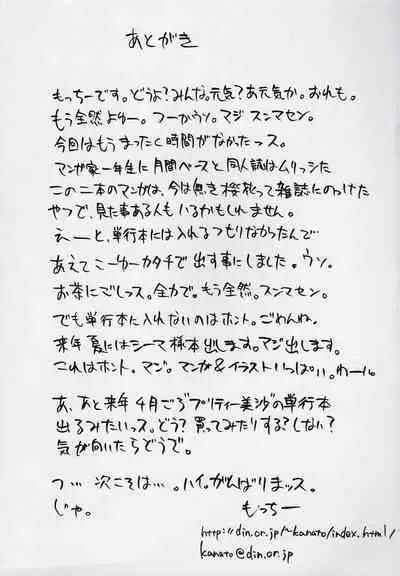 あとがき
もっちーです。どうよ?みんな。元気?あ元気か。おれも。
もう全然よゆー。つーかウソ。マジ スンマセン。
今回はもうまったく時間がなかったッス。
マンガ家一年生に月間ペースと同人誌はムリッシた
この二本のマンガは、今は無き桜桃って雑誌にのっけた
やつで、見た事ある人もいるかもしれません。
えーと、単行本には入れるつもりなかったんで
あえてこーゆーカタチで出す事にしました。ウソ。
お茶にごしっス。全力で。もう全然。スンマセン。
でも単行本に入れないのはホント。ごわんね。
来年 夏にはシーマ様本出します。マジ出します。
これはホント。マジ。マンガ&イラストいっぱい。わーい。
あ、あと来年4月ごろ"プリティー美沙"の単行本
出るみたいっス。どう?買ってみたりする?しない?
気が向いたらどうで。
つ… 次こそは…。ハイ。がんばりまッス。
じゃ。 もっちー
http://din.or.jp/~kanato/index.html/
kanato@din.or.jp